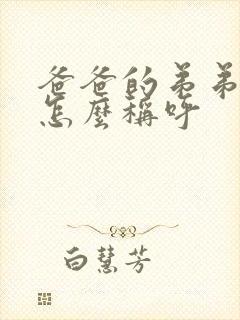 爸爸的弟弟
怎麼稱呼
白慧芳